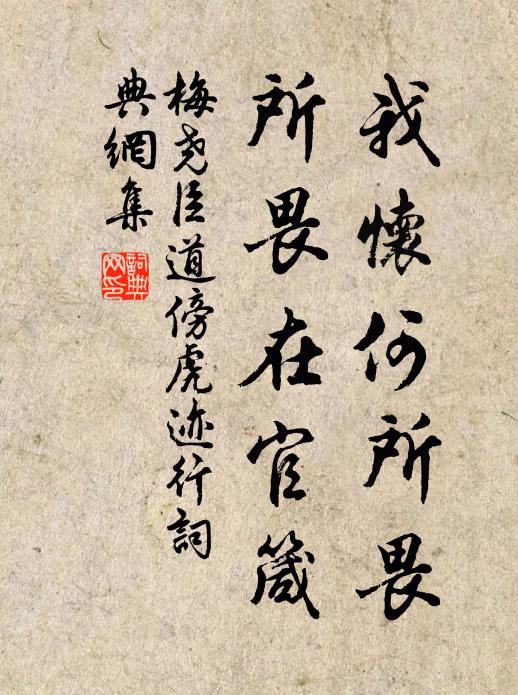 我懷何所畏
所畏在官箴
梅堯臣道傍虎迹行詞
典網集
詞典网印